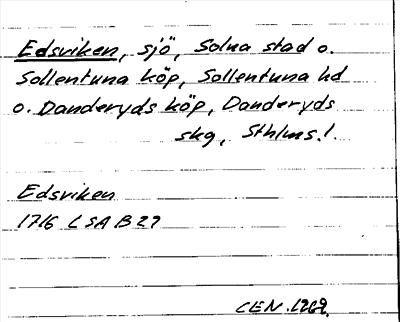 Edsviken, sjö, Solna stad o.
Sollentuna köp, Sollentuna hd
o. Danderyds köp, Danderyds
skg, Sthlms.l.
Edsviken
1716 LSA B27
CEN.1969.